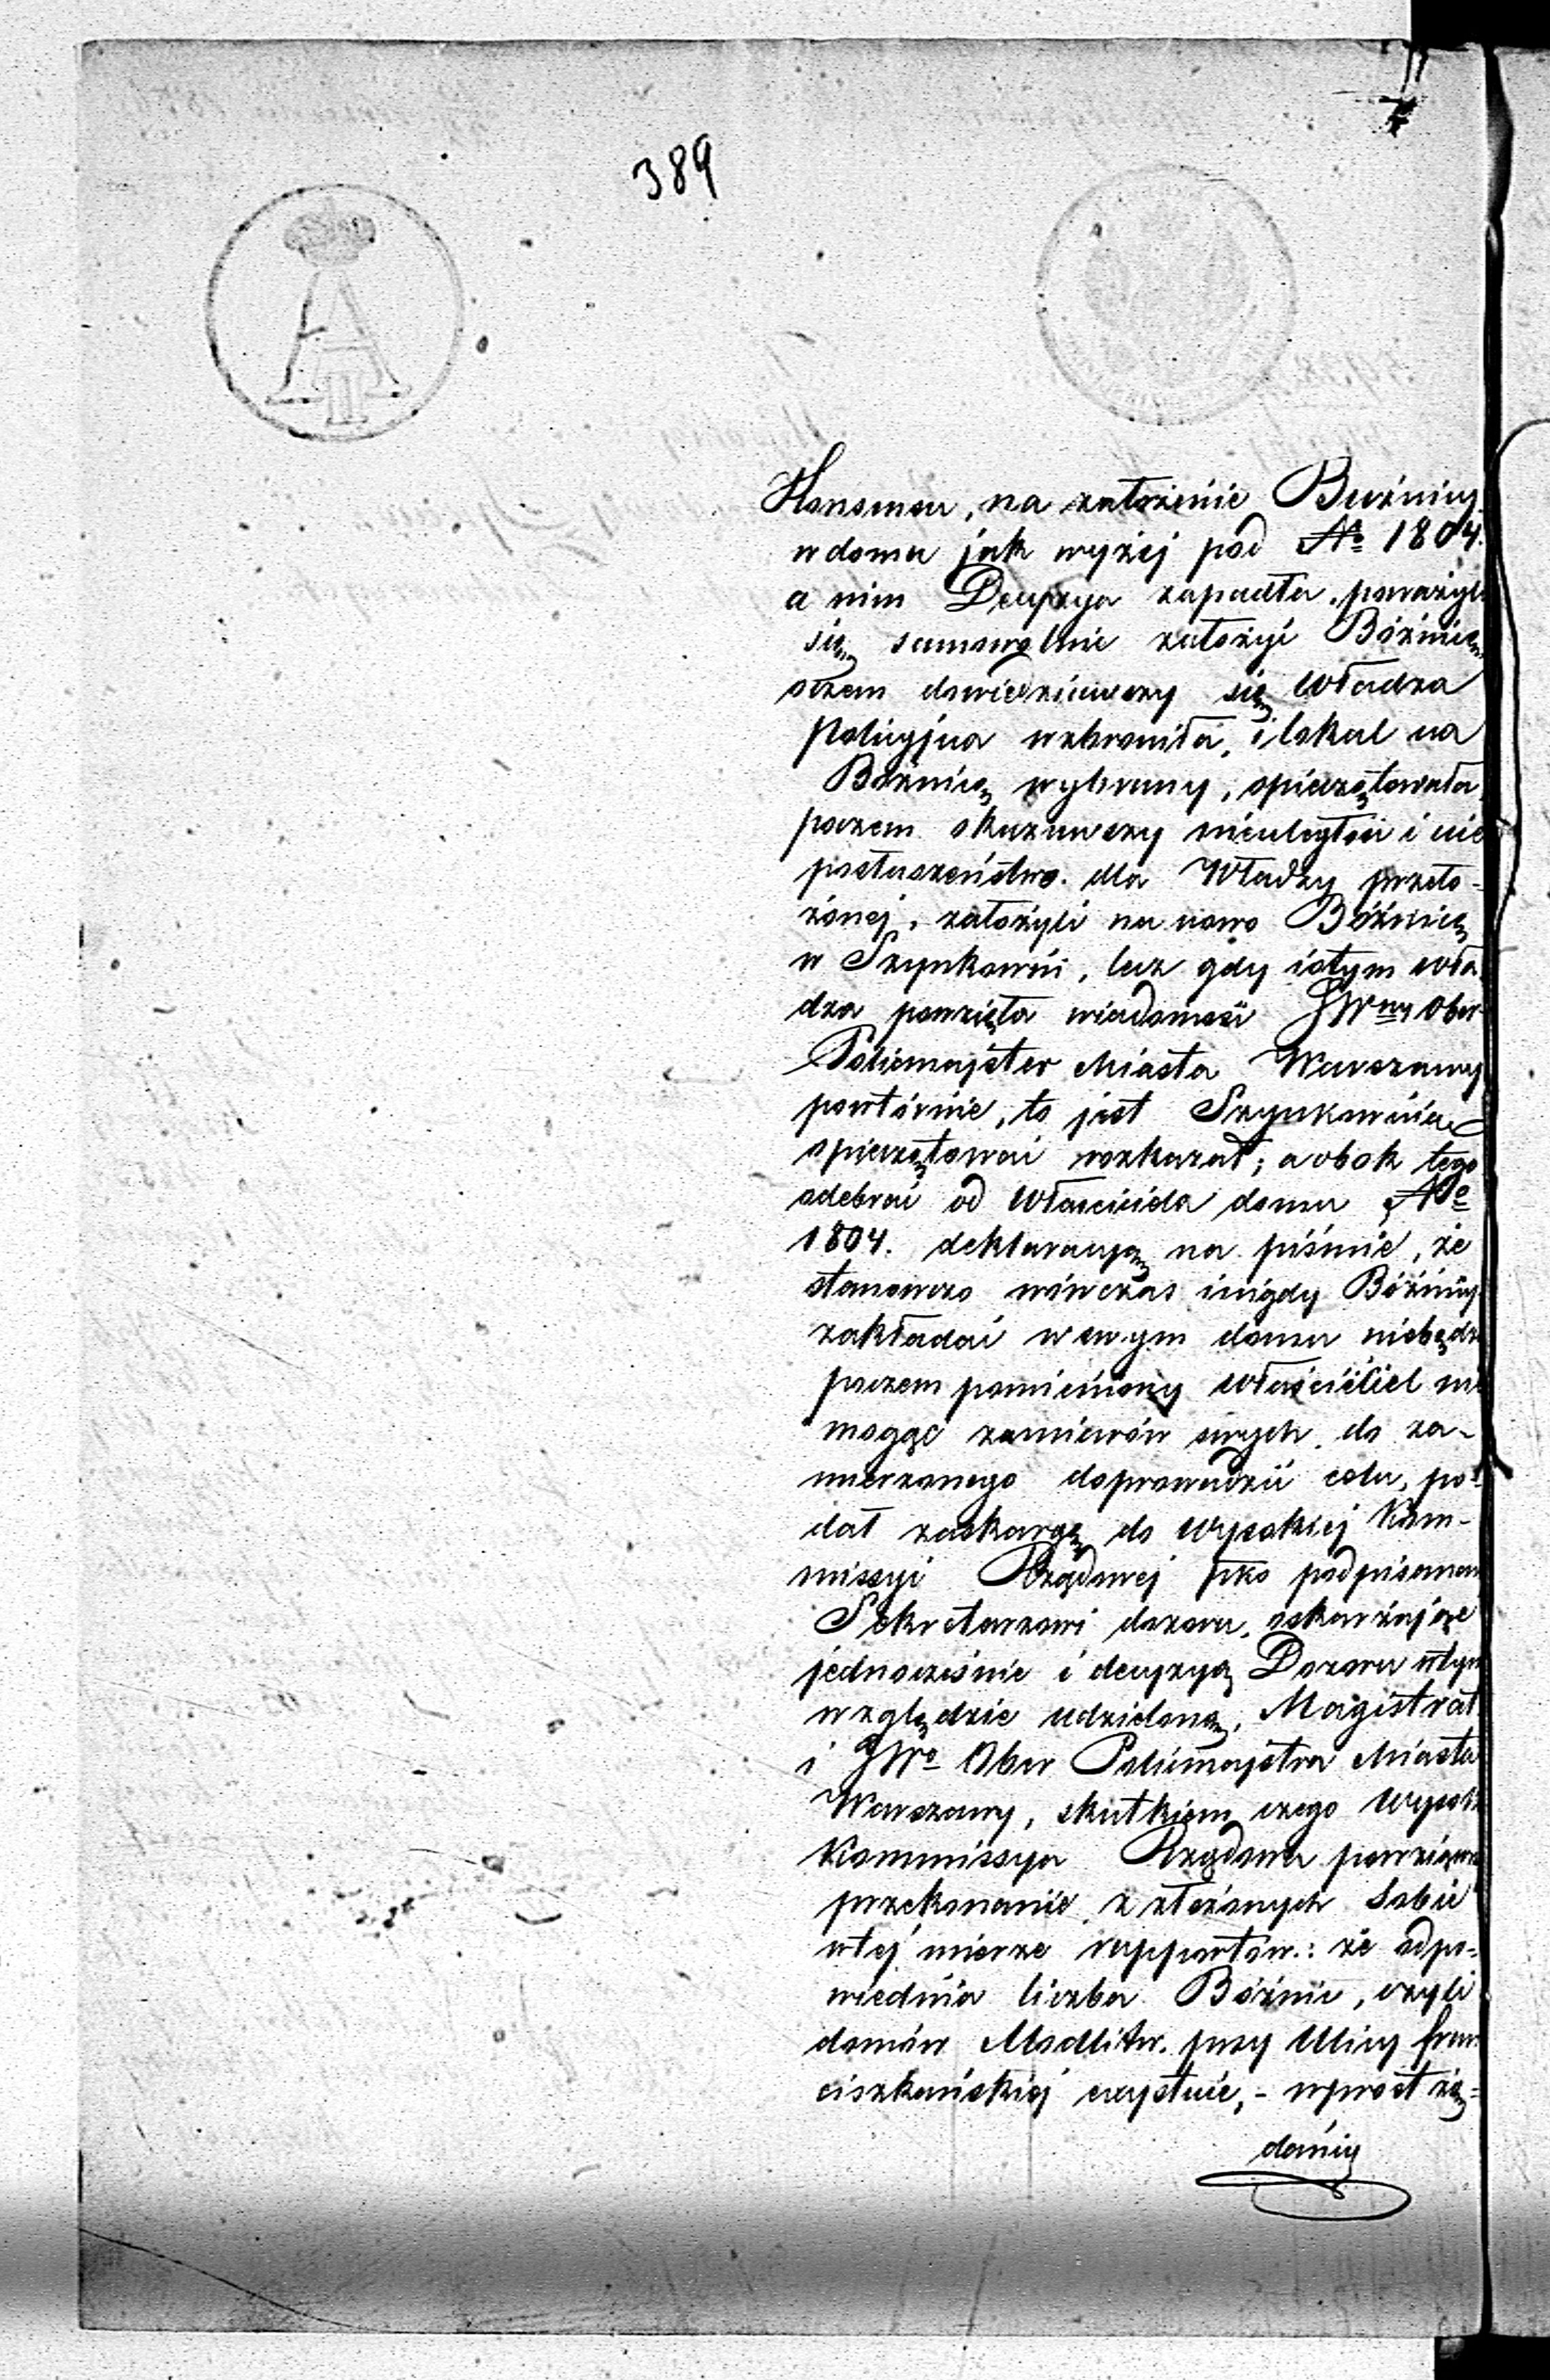 389
Konsensu, na założenie Bużnicy
w domu jak wyżej pod № 1804.
a nim Decyzya zapadła, poważyli
się samowolnie założyć Bóżnicę
oczem dowiedziawszy się Władza
Policyjna wzbroniła, i lokal na
Bożnicę wybrany, opieczętowała,
poczem okazawszy nieuległość i nie
posłuszeństwo dla Władzy przeło-
żonej, założyli na nowo Bóżnicę
w Szynkowni, lecz gdy iotym wła
dza powzięła wiadomość JWny Ober
Policmajster Miasta Warszawy
powtórnie, to jest Szynkownią
opieczętować rozkazał; a obok tego
odebrać od Właściciela domu №
1804. deklaracyą na piśmie, że
stanowczo wówczas inigdy Bóżnicy
zakładać w swym domu niebędz
poczem pomieniony Właściciel nie
mogąc zamiarów swych do za-
mierzonego doprowadzić celu, po-
dał zaskargę do Wysokiej Kom-
missyi Rządowej pko podpisanem
Sekretarzowi dozoru, oskarżając
jednocześnie i decyzyą Dozoru wtym
względzie udzieloną, Magistrat
i JWo Ober Policmajstra Miasta
Warszawy, skutkiem czego Wysok
Kommissya Rządowa powziąwszy
przekonanie z złożonych Sobie
wtej mierze rapportów: że odpo-
wiednia liczba Bóżnic, czyli
domów Modlitw. przy Ulicy fran
ciszkańskiej exystuie, - wprost żą=
dania